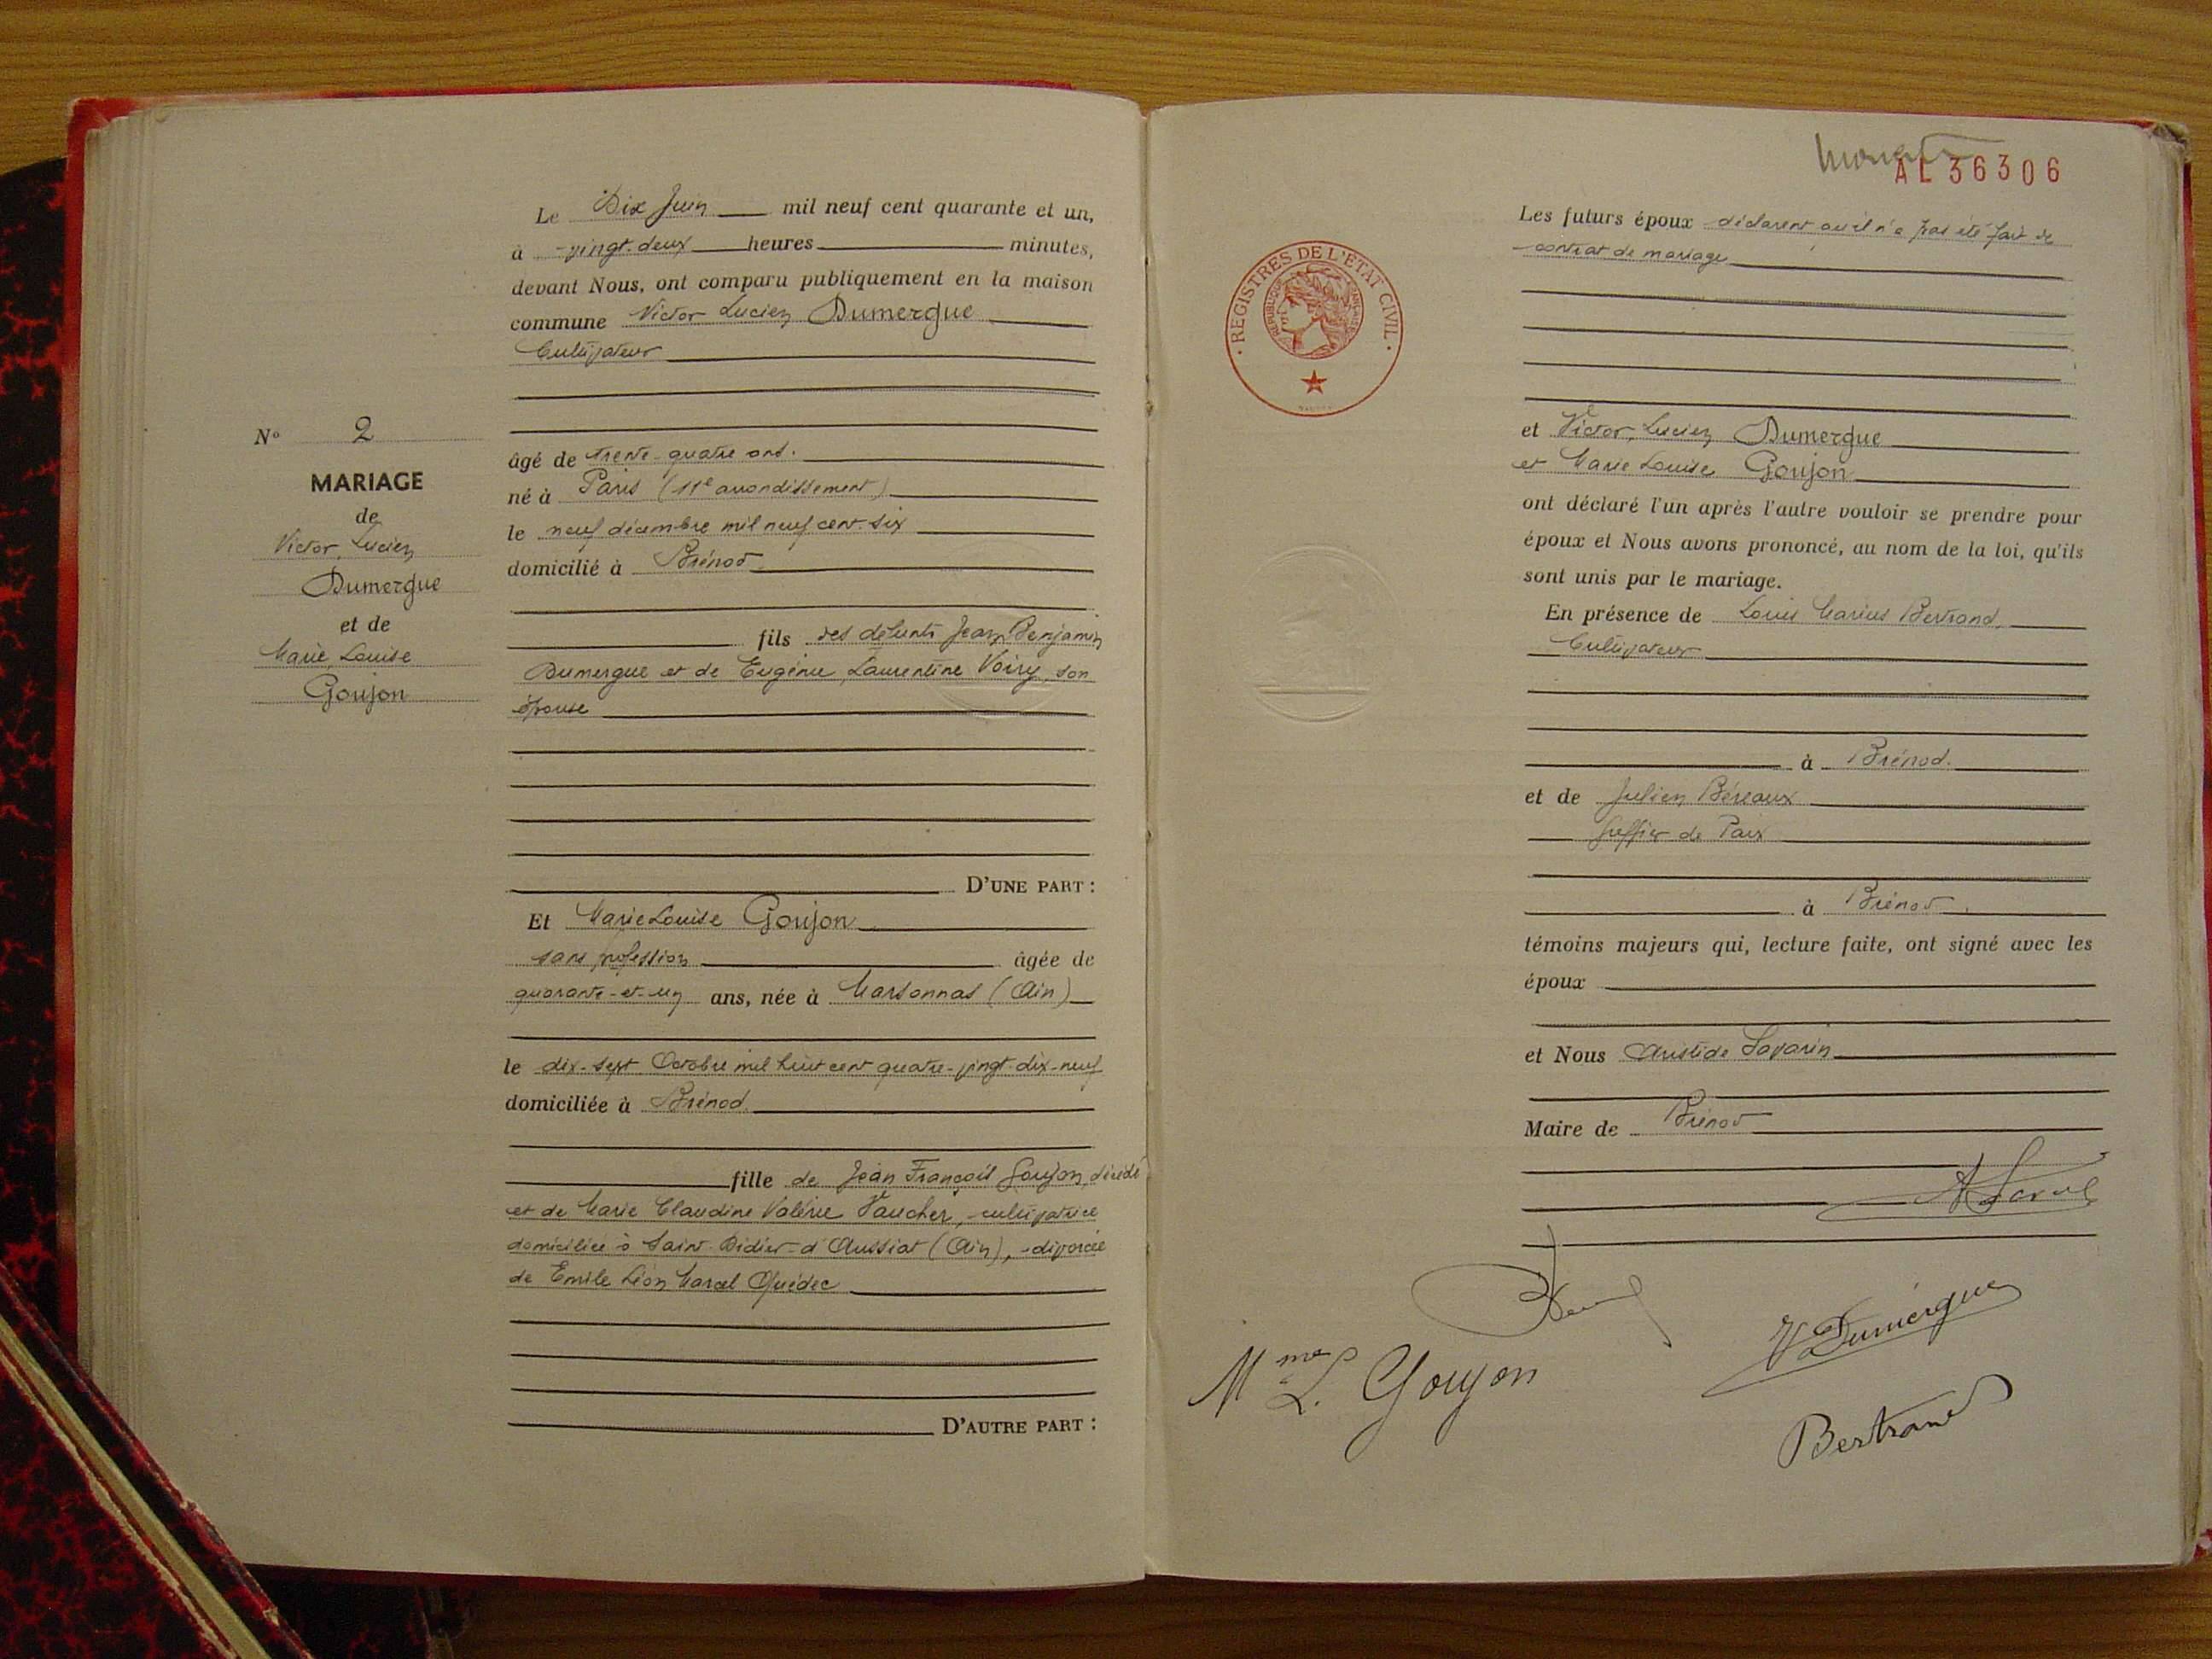 Le Dix Juin mil neuf cent quarante et un,
à vingt-deux heures minutes,
devant Nous, ont comparu publiquement en la maison
commune Victor Lucien Dumergue
Cultivateur
âgé de trente-quatre ans.
né à Paris (11e arrondissement)
le neuf décembre mil neuf cent six
domicilié à Brénod
fils des défunts Jean Benjamin
Dumergue et de Eugénie, Laurentine Voiry, son
épouse
D'UNE PART :
Et Marie Louise Goujon
sans profession âgée de
quarante-et-un ans, née à Marsonnas (Ain)
le dix-sept Octobre mil huit cent quatre-vingt-dix-neuf
domiciliée à Brénod
fille de Jean François Goujon, décédé
et de Marie Claudine Valérie Vaucher, cultivatrice
domiciliée à Saint-Didier-d'Aussiat (Ain), divorcée
de Emile Léon Marcel Quédec
D'AUTRE PART :
N° 2
MARIAGE
de
Victor, Lucien
Dumergue
et de
Marie, Louise
Goujon
AL 36306
REGISTRES DE L'ETAT CIVIL
REPUBLIQUE FRANÇAISE
Les futurs époux déclarent qu'il n'a pas été fait de
contrat de mariage
et Victor, Lucien Dumergue
et Marie Louise Goujon
ont déclaré l'un après l'autre vouloir se prendre pour
époux et Nous avons prononcé, au nom de la loi, qu'ils
sont unis par le mariage.
En présence de Louis Marius Bertrand,
Cultivateur
à Brénod.
et de Julien Béreaux
Greffier de Paix
à Brénod.
témoins majeurs qui, lecture faite, ont signé avec les
époux
et Nous Aristide Savarin
Maire de Brénod
V Dumergue
Mme L. Goujon
Bertrand